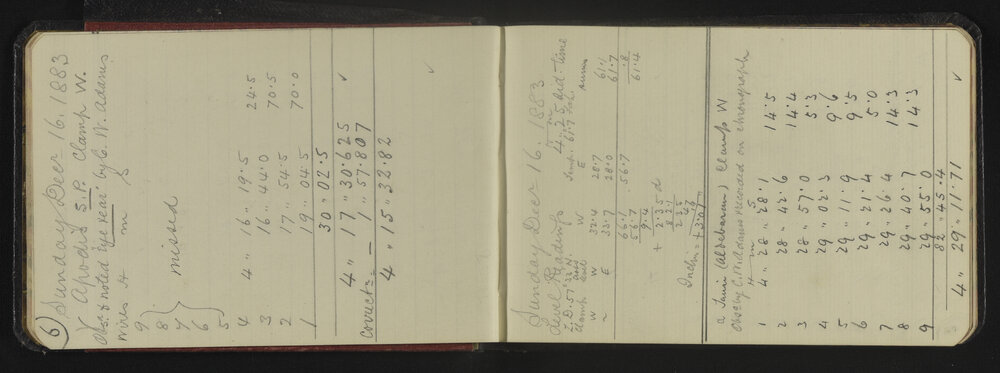 6) Sunday Decr 16, 1883
γ Apodis S.P. Clamp W.
Obsd & noted eye & ear by C. W. Adams
wires H m s
9
8
7 missed
6
5
4 4" 16. 19.5 24.5
3 16" 44.0 70.5
2 17" 54.5
1 19" 04.5 70.0
30" 02.5
4" 17" 30.625 ✓
Correctn = – 1" 57.807
4" 15" 32.82
✓
Sunday Decr 16. 1883
Level Readings 4.25 sid. time
Z.D. 57° 33' N. Temp. 61.7 Fah.
Clamp W E sums
W 32.4 28.7 61.1
E 33.7 28.0 61.7
66.1 56.7 .8
56.7 61.4
9.4
+ 2.35 d
Incln = + 3.07"
α Tauri (Aldebaran) Clamp W
Obsd by C. W. Adams & recorded on chronograph
H m s
1 4" 28" 28.1 14.5
2 28" 42.6 14.4
3 28" 57.0 5.3
4 29" 02.3 9.6
5 29" 11.9 9.5
6 29" 21.4 5.0
7 29" 26.4 14.3
8 29" 40.7 14.3
9 29" 55.0
82" 45.4
4" 29" 11.71 ✓